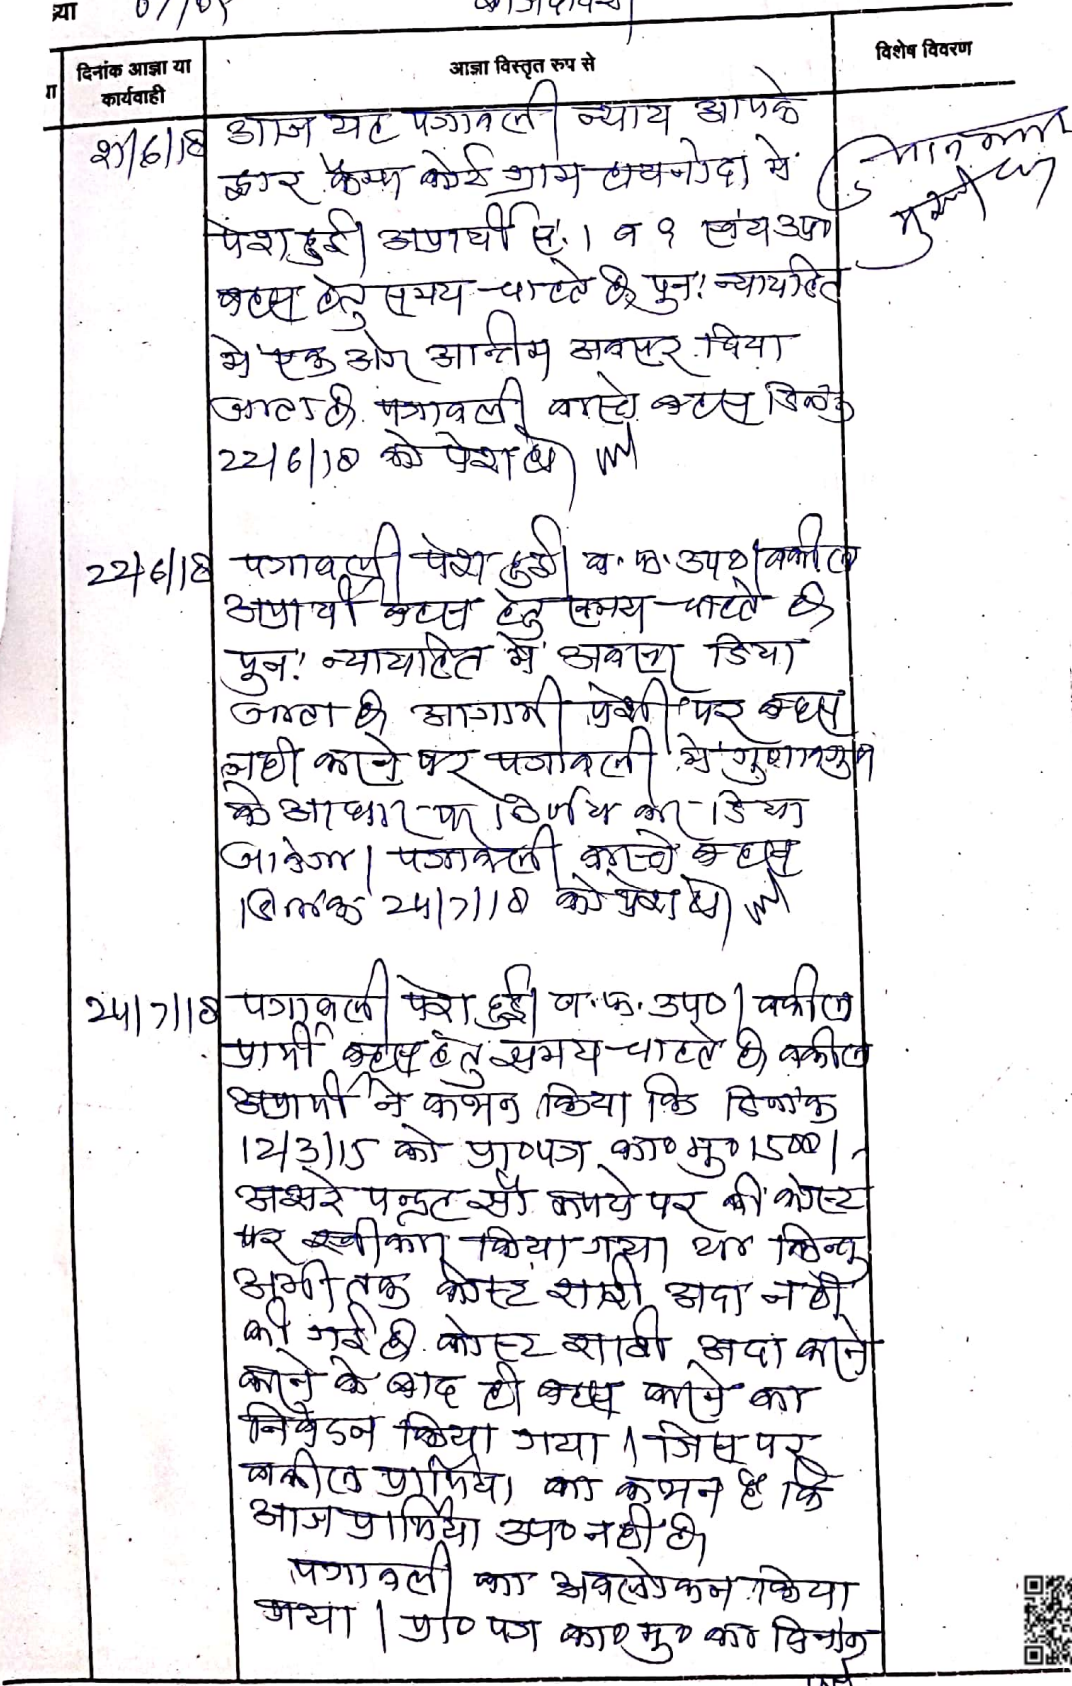 दिनांक आज्ञा या कार्यवाही
आज्ञा विस्तृत रुप से
विशेष विवरण
21/6/18 आज यह पत्रावली न्याय आपके
द्वार कैम्प कोर्ट ग्राम में
पेश हुई। अप्रार्थी सं. 1 व 9 स्वंय उप०
बहस हेतु समय चाहते है, पुनः न्यायहित
मे एक और अन्तिम अवसर दिया
जाता है. पत्रावली वास्ते बहस दिनांक
22/6/18 को पेश हो।
22/6/18 पत्रावली पेश हुई। व.फ. उप०। वकील
अप्रार्थी बहस हेतु समय चाहते है
पुनः न्यायहित मे अवसर दिया
जाता है, आगामी पेशी पर बहस
नही करने पर पत्रावली मे गुणावगुण
के आधार पर निर्णय कर दिया
जावेगा। पत्रावली वास्ते बहस
दिनांक 24/7/18 को पेश हो।
24/7/18 पत्रावली पेश हुई। व.फ. उप०। वकील
प्रार्थी बहस हेतु समय चाहते है, वकील
अप्रार्थी ने कथन किया कि दिनांक
12/3/15 को प्रा०पत्र का०मु० 1500/-
अक्षरे पन्द्रह सौ रूपये पर की कोस्ट
पर स्वीकार किया गया था किन्तु
अभी तक कोस्ट राशी अदा नही
की गई है. कोस्ट राशी अदा करने
करने के बाद ही बहस करने का
निवेदन किया गया। जिस पर
वकील प्रार्थिया का कथन है कि
आज प्रार्थिया उप० नही है,
पत्रावली का अवलोकन किया
गया। प्रा० पत्र का०मु० का दिनांक